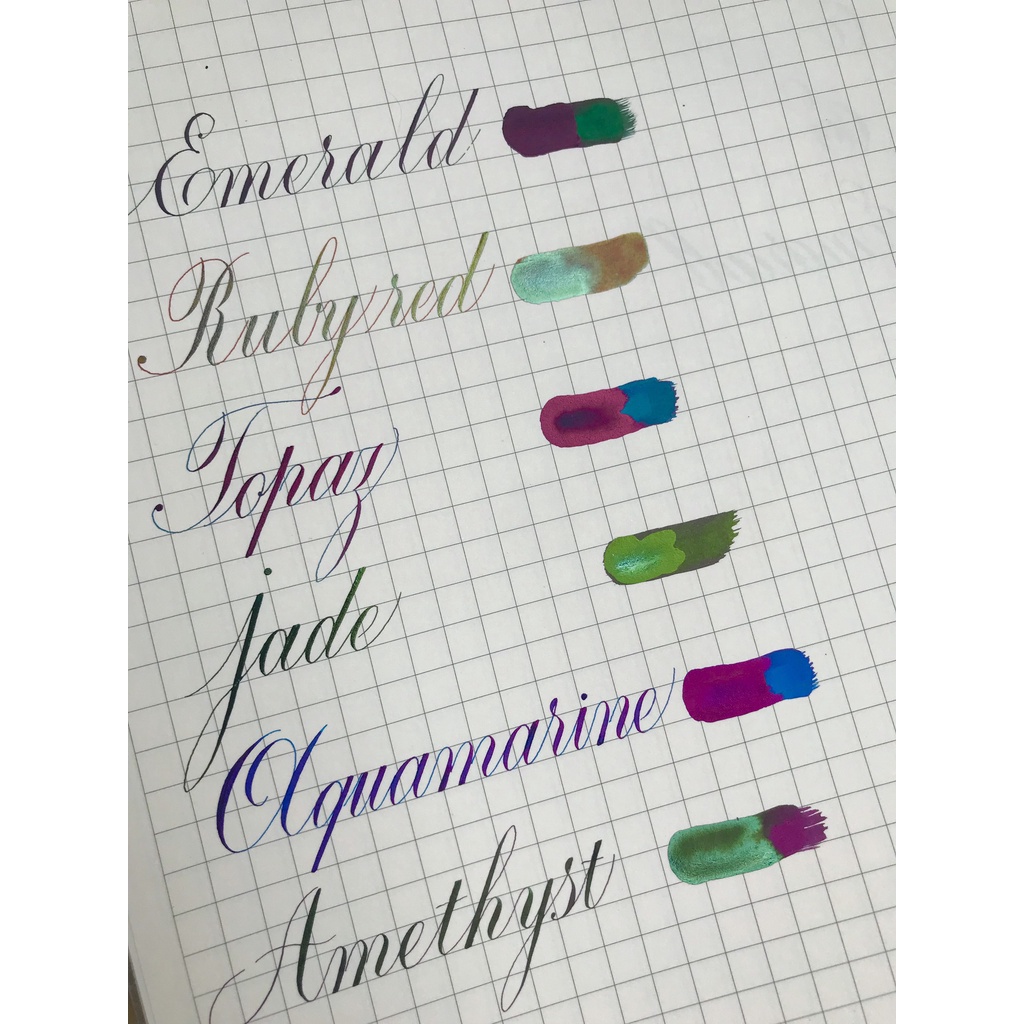 Emerald
Ruby red
Topaz
jade
Aquamarine
Amethyst